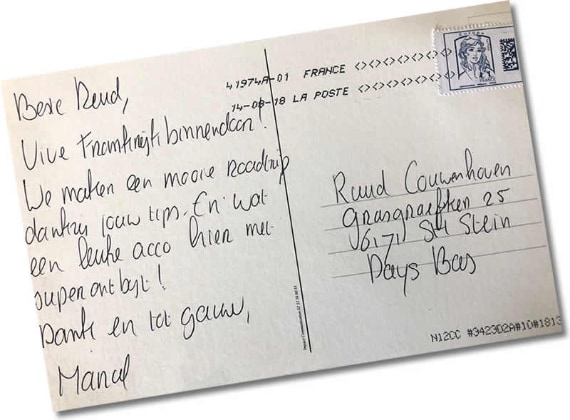 Beste Ruud,
Vive Frankrijk binnendoor!
We maken een mooie roadtrip
dankzij jouw tips. En wat
een leuke acco hier met
super ontbijt!
Dank en tot gauw,
Manal
41974A-01 FRANCE
14-08-18 LA POSTE
Ruud Couwenhoven
25
6171 Stein
Pays Bas
N12CC #342302A#10#1813